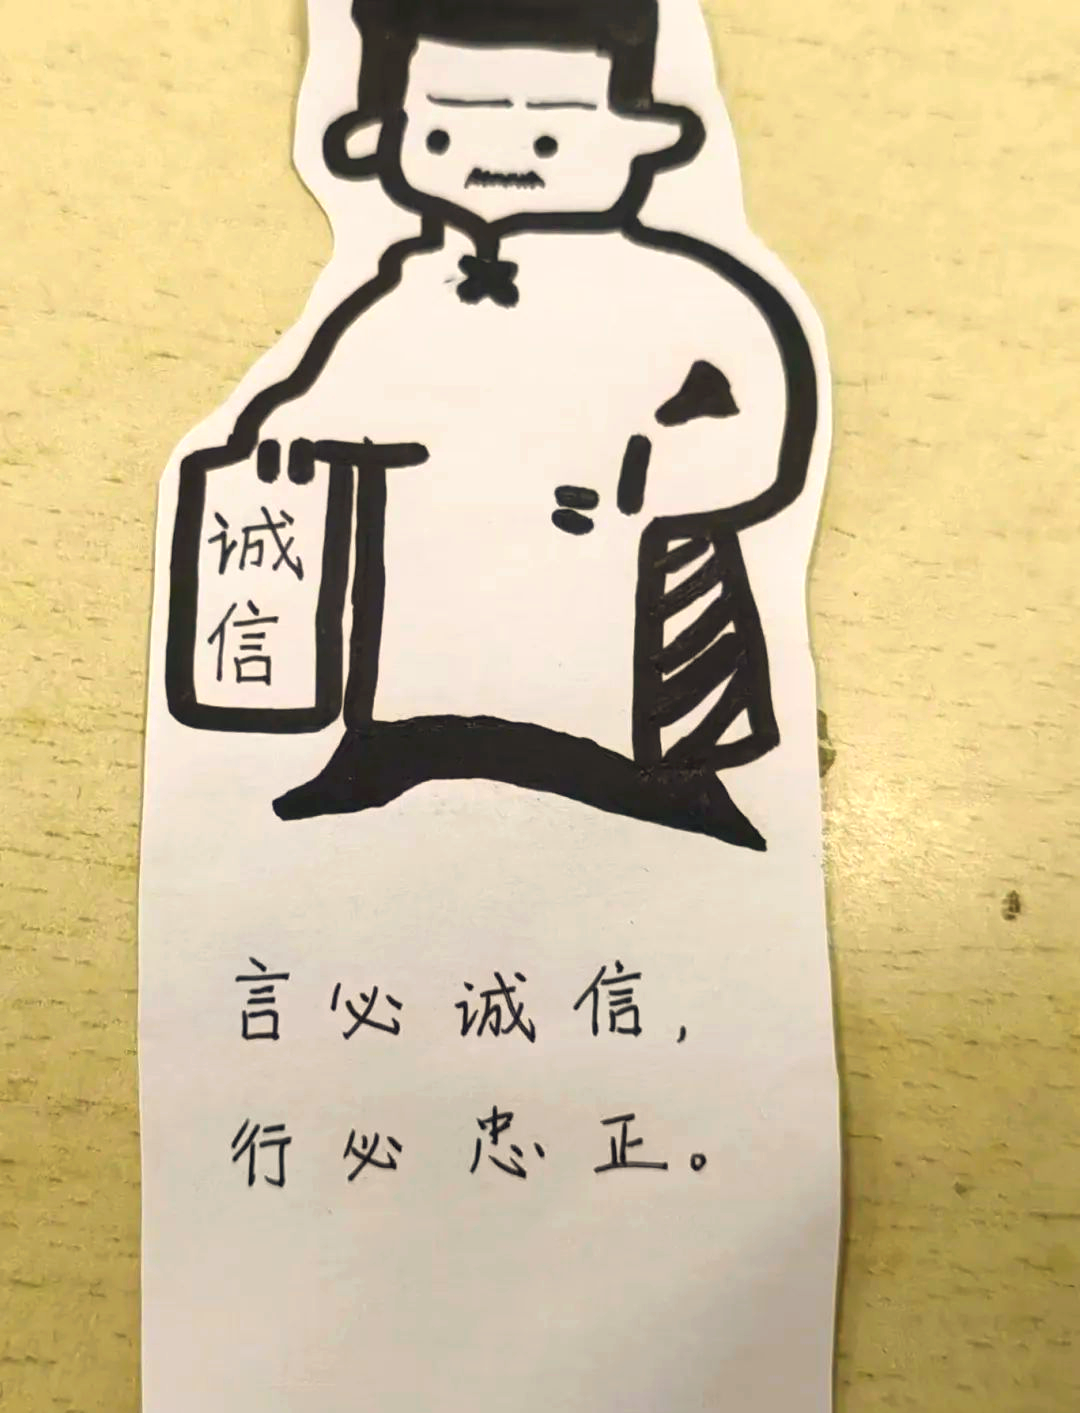 诚
信
言必诚信,
行必忠正。